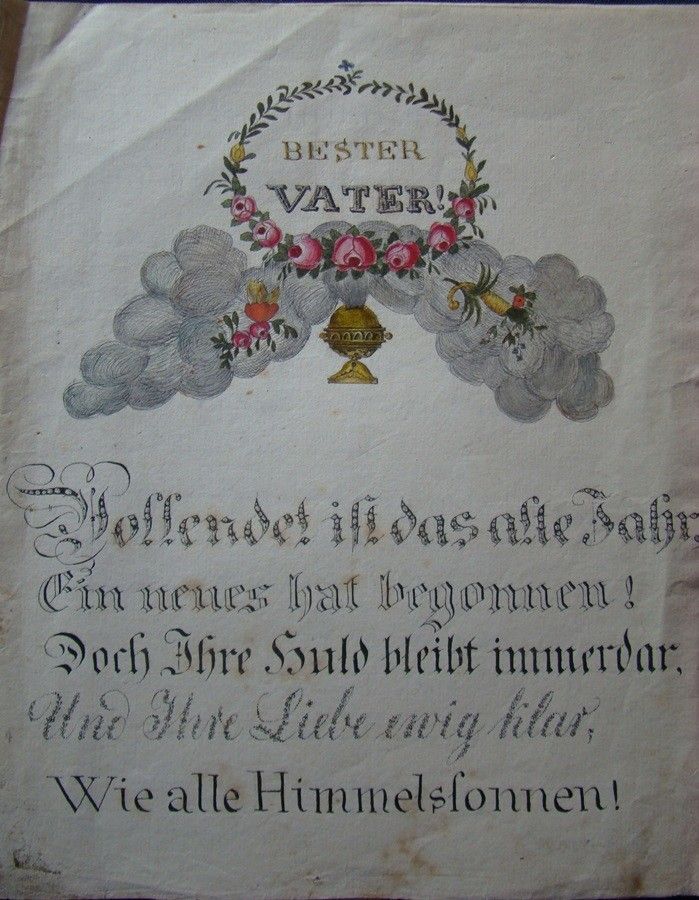 BESTER
VATER!
Vollendet iſt das alte Jahr,
Ein neues hat begonnen!
Doch Ihre Huld bleibt immerdar,
Und Ihre Liebe ewig klar,
Wie alle Himmelsſonnen!